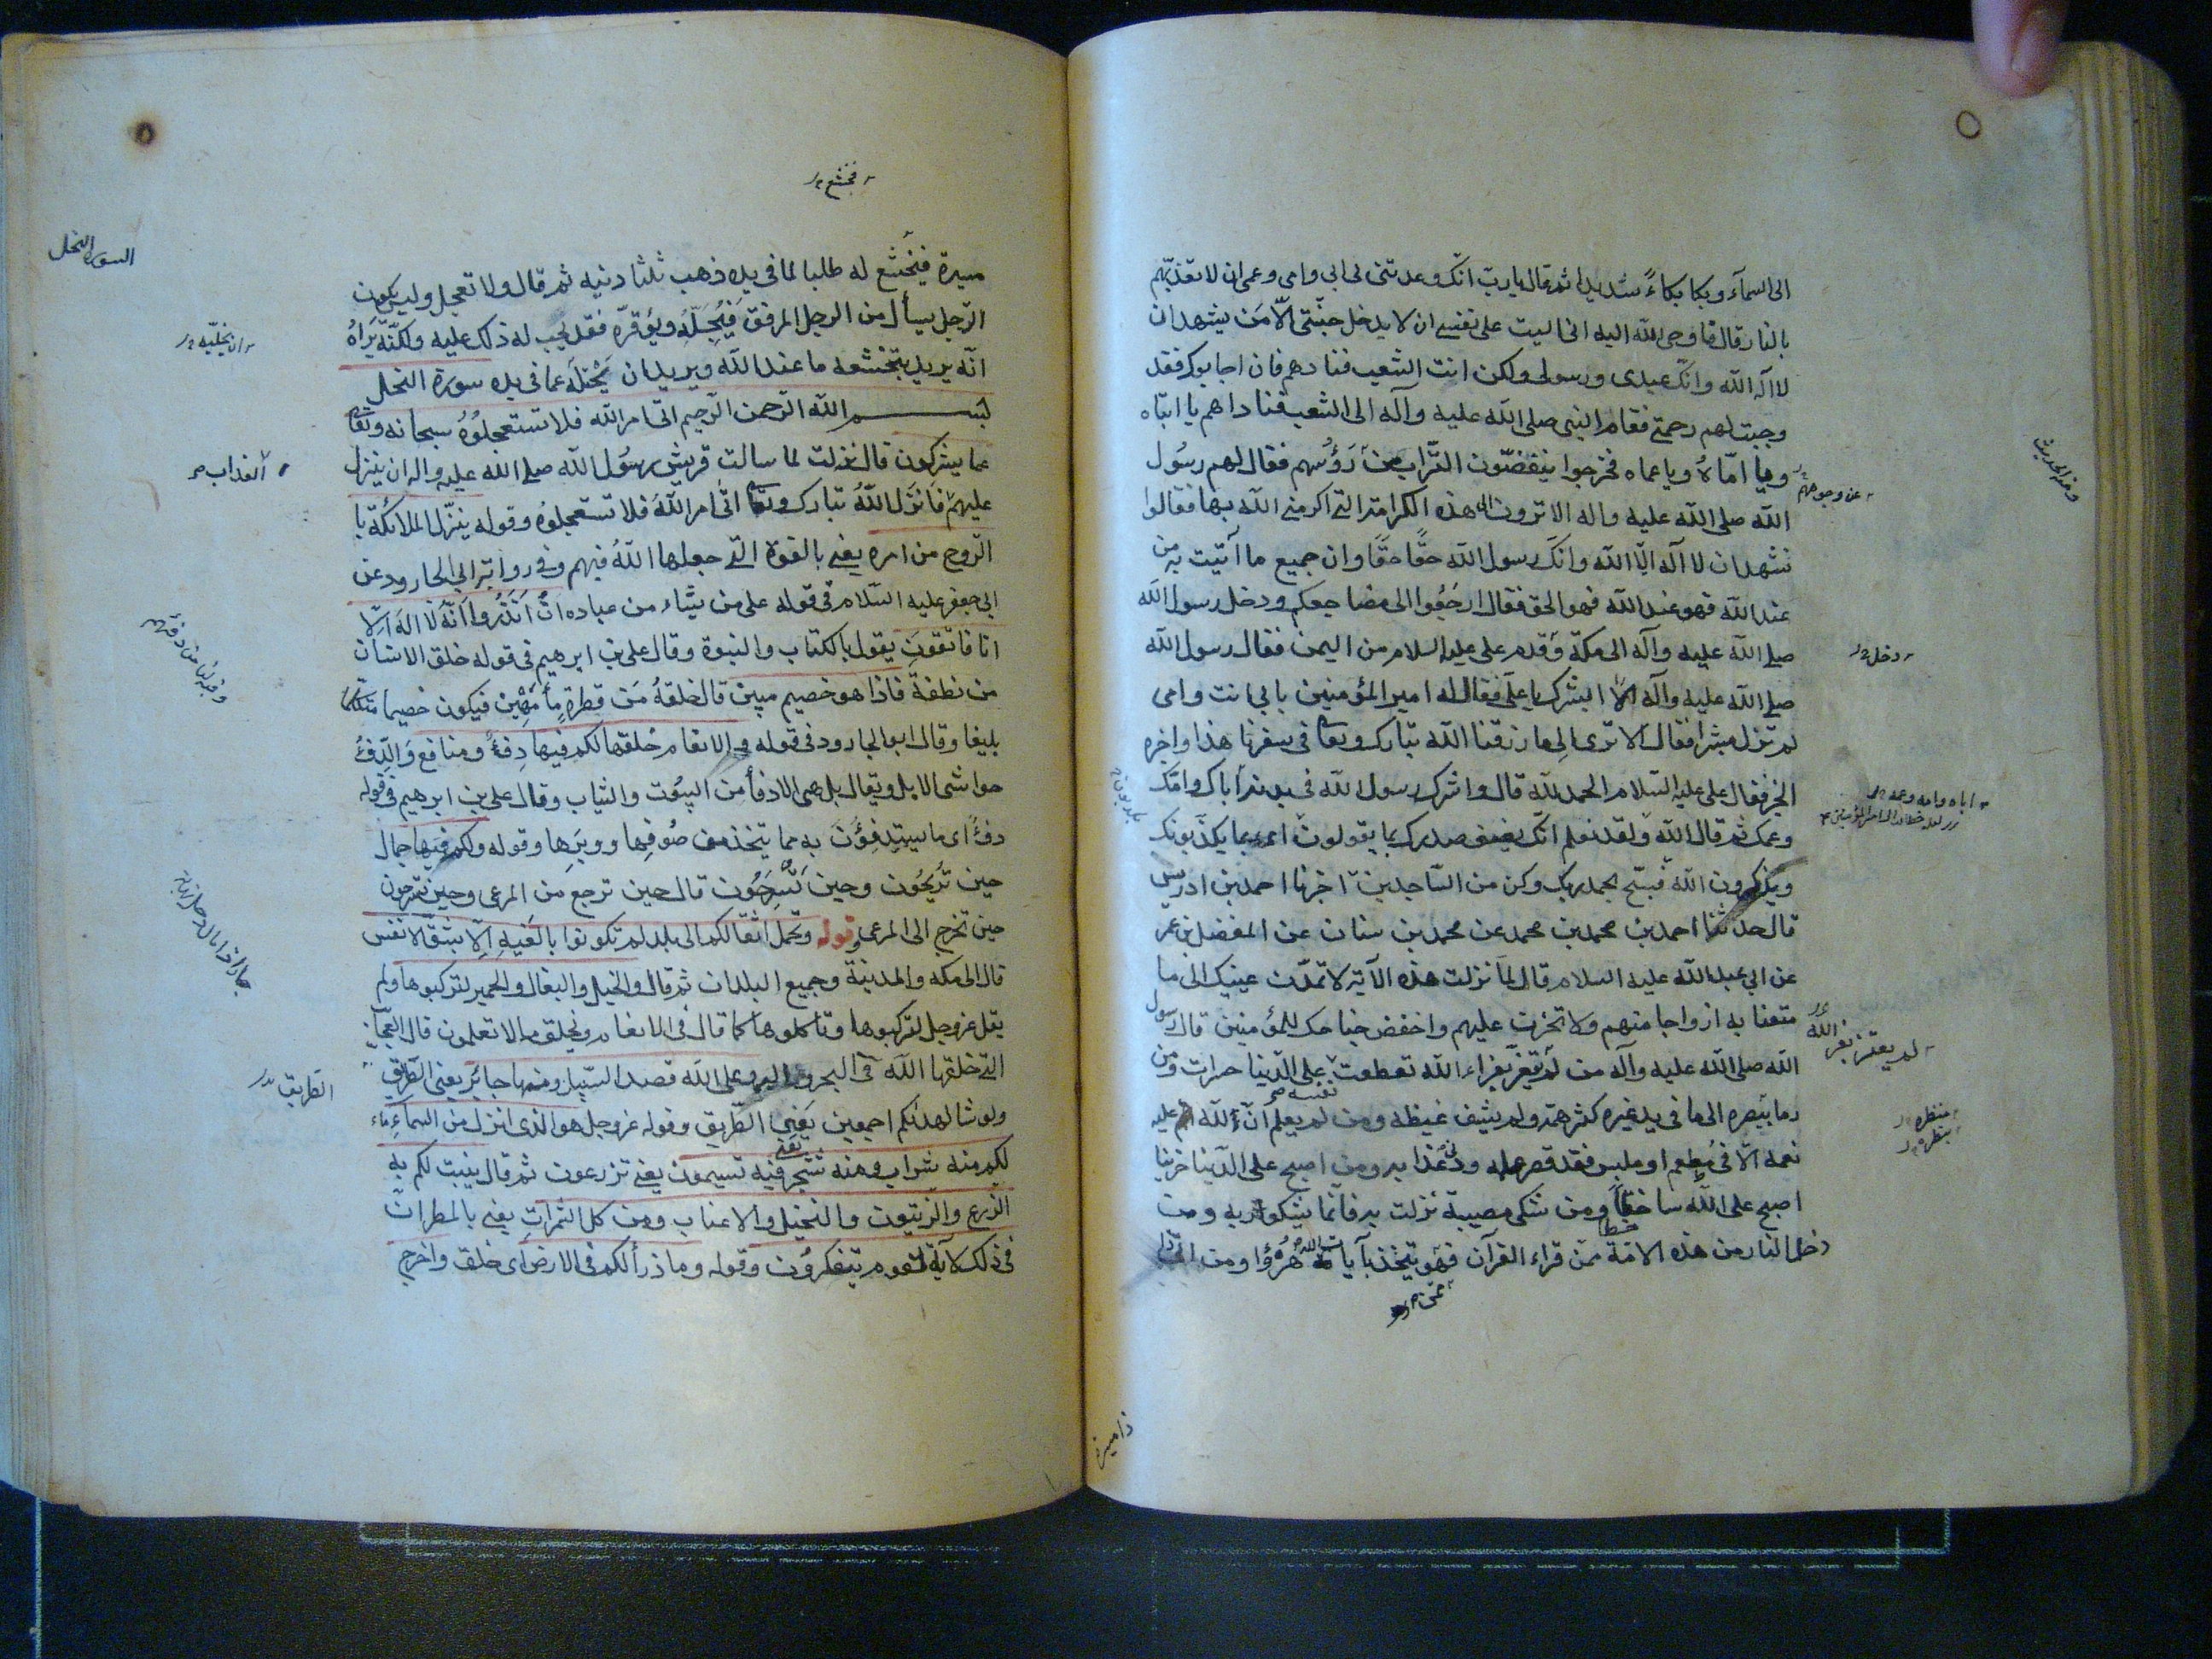 الى السمآء وبكا بكاءً شديدا ثم قال يا ربّ انّك وعدتنى لى ابى وامى وعمى ان لا تعذّبهم
بالنار قال فاوحى الله اليه انى اليت على نفسى ان لا يدخل جنّتى الّا من يشهد ان
لا اله الله وانّك عبدى ورسولى ولكن ائت الشعب فنادهم فان اجابوك فقد
وجبت لهم رحمتى فقام النبى صلى الله عليه وآله الى الشعب فناداهم يا ابتاه
ويا امّاه ويا عماه فخرجوا ينفضون التّراب من رؤسهم فقال لهم رسُول
الله صلى الله عليه واله الا ترون الى هذه الكرامة التى اكرمنى الله بها فقالوا
نشهد ان لا اله الّا الله وانّك رسول الله حقّا حقّا وان جميع ما أتيت به من
عند الله فهو عند الله فهو الحق فقال ارجعُوا الى مضاجعكم ودخل رسول الله
صلى الله عليه وآله الى مكّة وقدم على عليه السلام من اليمن فقال رسول الله
صلى الله عليه وآله الا ابشرك يا على فقال له امير المؤمنين بابى انت وامى
لم تزل مبشرا فقال الا ترى الى ما رزقنا الله تبارك وتعا فى سفرنا هذا واخبره
الخبر فقال على عليه السّلام الحمد لله قال واشرك رسول الله فى بدنه اباك وامّك
وعمك ثم قال الله ولقد نعلم انّك يضيق صدرك بما يقولون اى بما يكذّبونك
ويذكرون الله فسبّح بحمد ربك وكن من السّاجدين اخبرنا احمد بن ادريس
قال حدثنا احمد بن محمد بن محمد عن محمد بن سنان عن المفضل بن عمر
عن ابى عبد الله عليه السلام قال لمّا نزلت هذه الآية لا تمدّن عينيك الى ما
متعنا به ازواجا منهم ولا تحزن عليهم واخفض جناحك للمؤمنين قال رسول
الله صلى الله عليه وآله من لم يتعزّ بعزاء الله تقطعت نفسه على الدّنيا حسرات ومن
رما ببصره الى ما فى يد غيره كثر همّه ولم يشف غيظه ومن لم يعلم انّ لله عليه
نعمه الّا فى مطعم او ملبس فقد قصر عمله ودنى عذابه ومن اصبح على الدّنيا حزينا
اصبح على الله ساخطا ومن شكى مصيبة نزلت به فانما يشكوا ربه ومن
دخل النار من هذه الامّة ممّن قراء القرآن فهو يتّخذ بآيات الله هزؤا ومن اتى ذا
عن وجوههم
دخل
اباه وامه وعمه
لم يتعز بعزاء الله
ينظره
ذا ميسرة
فتخشع
ميسرة فيخشع له طلبا لما فى يده ذهب ثلثا دينه ثم قال ولا تعجل وليس يكون
الرّجل يسأل من الرجل المرفق فيُجلّه ويوقّره فقد يجب له ذلك عليه ولكنّه يراه
انّه يريد بتخشعه ما عند الله ويريد ان يختله عما فى يده سورة النحل
بسم الله الرّحمن الرّجيم اتى امر الله فلا تستعجلوُهُ سبحانه وتعا
عما يشركون قال نزلت لما سالت قريش رسُول الله صلى الله عليه واله ان ينزل
عليهم فانزل اللهُ تبارك وتعا اتى امر الله فلا تستعجلوُه وقوله ينزّل الملائكة با
الرّوح من امره يعنى بالقوة التى جعلها اللهُ فيهم وفى رواية ابى الجارود عن
ابى جعفر عليه السّلام فى قوله على من يشاء من عباده ان انذروا انّه لا اله الّا
انا فاتقون يقول بالكتاب والنبوة وقال على بن ابرهيم فى قوله خلق الانسان
من نطفة فاذا هو خصيم مبين قال خلقهُ من قطرةِ مآء مَهِين فيكون خصيما متكلّما
بليغا وقال ابو الجارود فى قوله والانعام خلقها لكم فيها دِفءٌ ومنافع والدّفءُ
حواشى الابل ويقال بل هى الادفأ من البيُوت والثياب وقال على بن ابرهيم فى قوله
دفءٌ اى ما يستدفِؤُن به مما يتخذ من صُوفِها ووبَرِها وقوله ولكم فيها جمال
حين تُريحُون وحين تَسْرَحُون قال حين ترجع من المرعى وحين تسرحون
حين تخرج الى المرعى وقوله وتحمل اثقالكم الى بلد لم تكونوا بالغيه الّا بشقّ الانفس
قال الى مكه والمدينة وجميع البلدان ثم قال والخيل والبغال والحمير لتركبوها ولم
يقل عزوجل لتركبوها وتاكلوها كما قال فى الانعام ويخلق ما لا تعلمون قال العجائب
التى خلقها الله فى البحر والبر وعلى الله قصد السّبيل ومنها جائر يعنى الطّريق
ولو شا لهديكم اجمعين يعنى الطّريق وقوله عزوجل هو الذى انزل من السماءِ ماء
لكم منه شراب ومنه شجر فيه تسيمون يعنى تزرعون ثم قال ينبت لكم به
الزرع والزيتون والنخيل والاعناب ومن كل الثمراتِ يعنى بالمطر ان
فى ذلك لآية لقوم يتفكرُون وقوله وما ذرأ لكم فى الارض اى خلق واخرج
السورة النحل
العذاب
الطريق